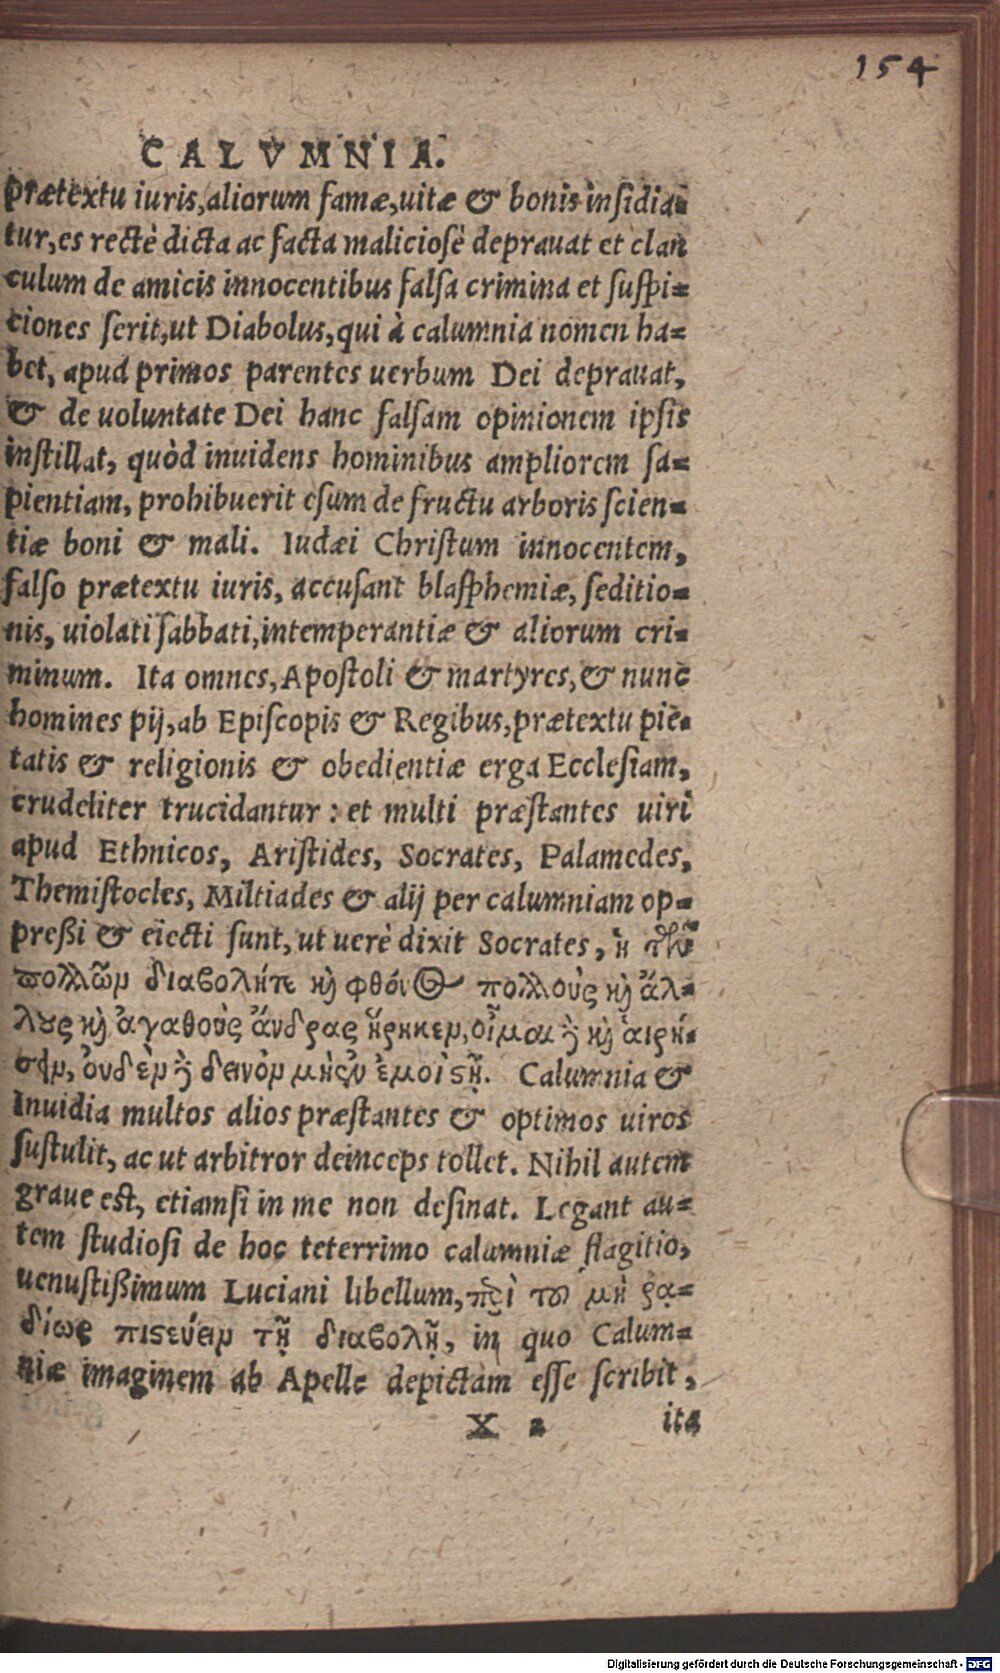 154
CALVMNIA.
prætextu iuris, aliorum famæ, uitæ & bonis insidia⸗
tur, es rectè dicta ac facta maliciosè deprauat et clan
culum de amicis innocentibus falsa crimina et suspi⸗
ciones serit, ut Diabolus, qui à calumnia nomen ha⸗
bet, apud primos parentes uerbum Dei deprauat,
& de uoluntate Dei hanc falsam opinionem ipsis
instillat, quòd inuidens hominibus ampliorem sa⸗
pientiam, prohibuerit esum de fructu arboris scien⸗
tiæ boni & mali. Iudæi Christum innocentem,
falso prætextu iuris, accusant blasphemiæ, seditio⸗
nis, uiolati sabbati, intemperantiæ & aliorum cri⸗
minum. Ita omnes, Apostoli & martyres, & nunc
homines pij, ab Episcopis & Regibus, prætextu pie⸗
tatis & religionis & obedientiæ erga Ecclesiam,
crudeliter trucidantur: et multi præstantes uiri
apud Ethnicos, Aristides, Socrates, Palamedes,
Themistocles, Miltiades & alij per calumniam op⸗
preßi & eiecti sunt, ut uerè dixit Socrates, ἡ τῶν
πολλῶν διαβολήτε καὶ φθόνος πολλοὺς καὶ ἄλ⸗
λους καὶ ἀγαθοὺς ἄνδρας ᾕρηκεν, οἶμαι δὲ καὶ αἱρή⸗
σειν, ὀυδὲν δὲ δεινὸν μὴ ἐν ἐμοὶ στῇ. Calumnia &
Inuidia multos alios præstantes & optimos uiros
sustulit, ac ut arbitror deinceps tollet. Nihil autem
graue est, etiamsi in me non desinat. Legant au⸗
tem studiosi de hoc teterrimo calumniæ flagitio,
uenustißimum Luciani libellum, περὶ τοῦ μὴ ῥᾳ⸗
δίως πιστεύειν τῇ διαβολῇ, in quo Calum⸗
niæ imaginem ab Apelle depictam esse scribit,
X 2 ita
Digitalisierung gefördert durch die Deutsche Forschungsgemeinschaft - DFG